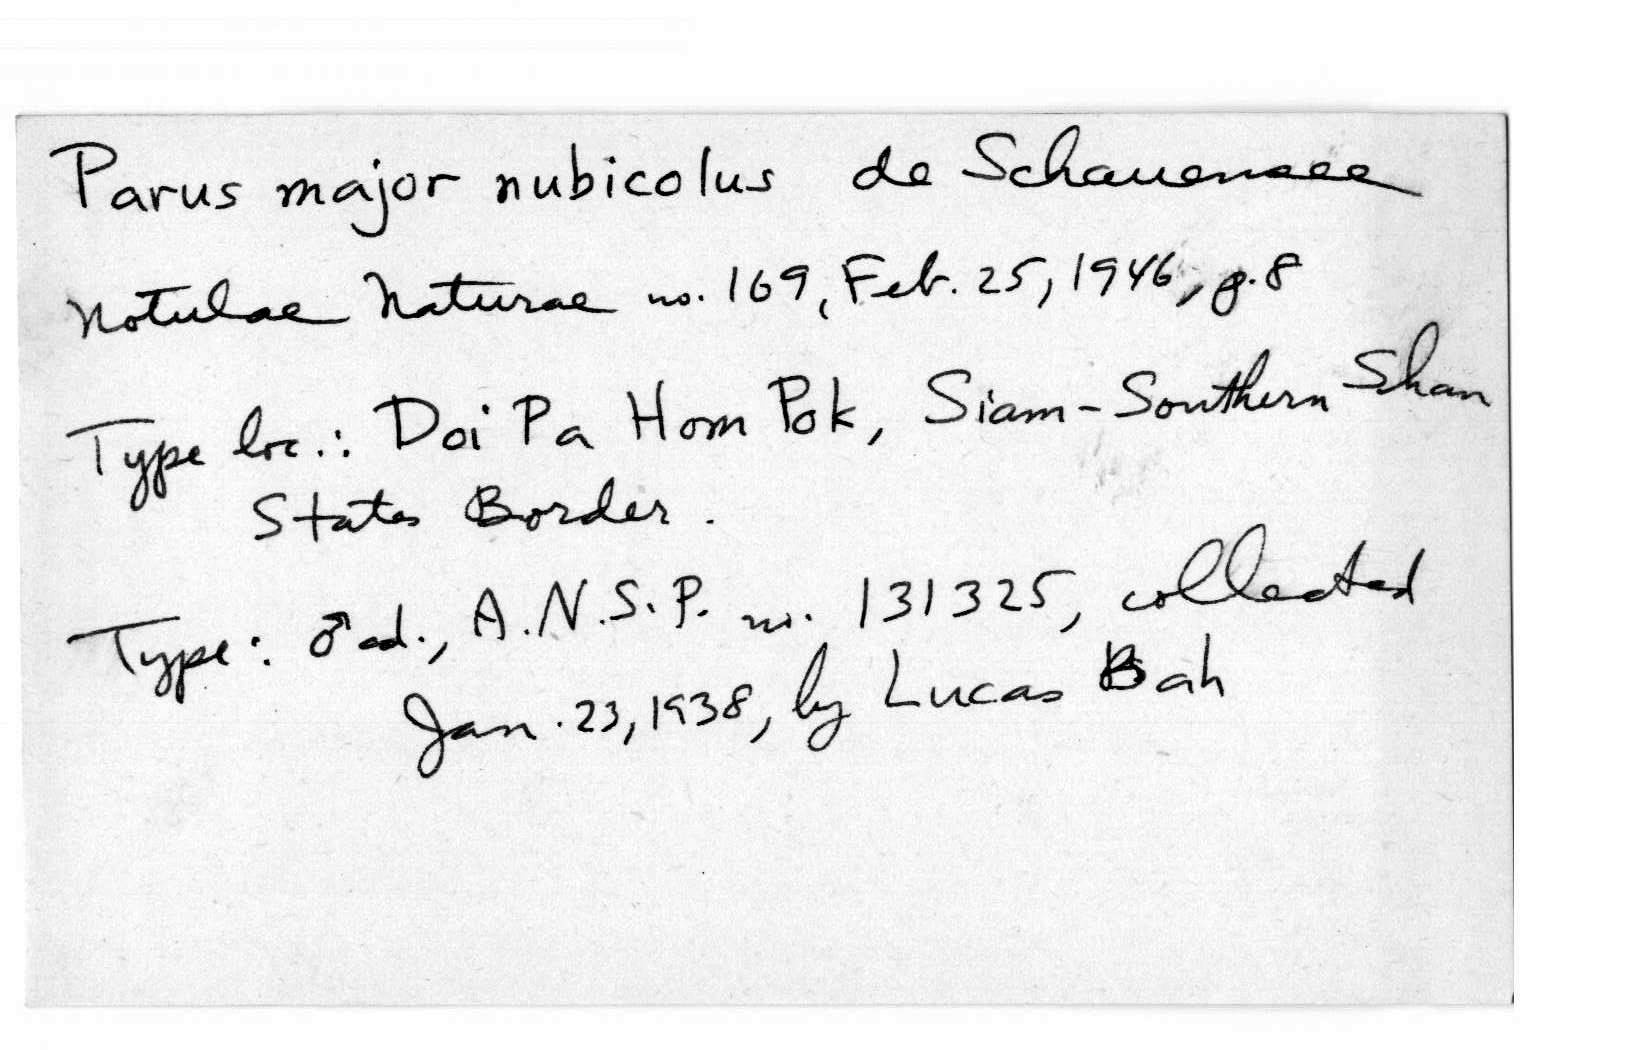 Parus major nubicolus de Schauensee
Notulae Naturae no. 169, Feb. 25, 1946, p. 8
Type loc.: Doi Pa Hom Pok, Siam-Southern Shan
States Border.
Type: ♂ ad., A.N.S.P. no. 131325, collected
Jan. 23, 1938, by Lucas Bah